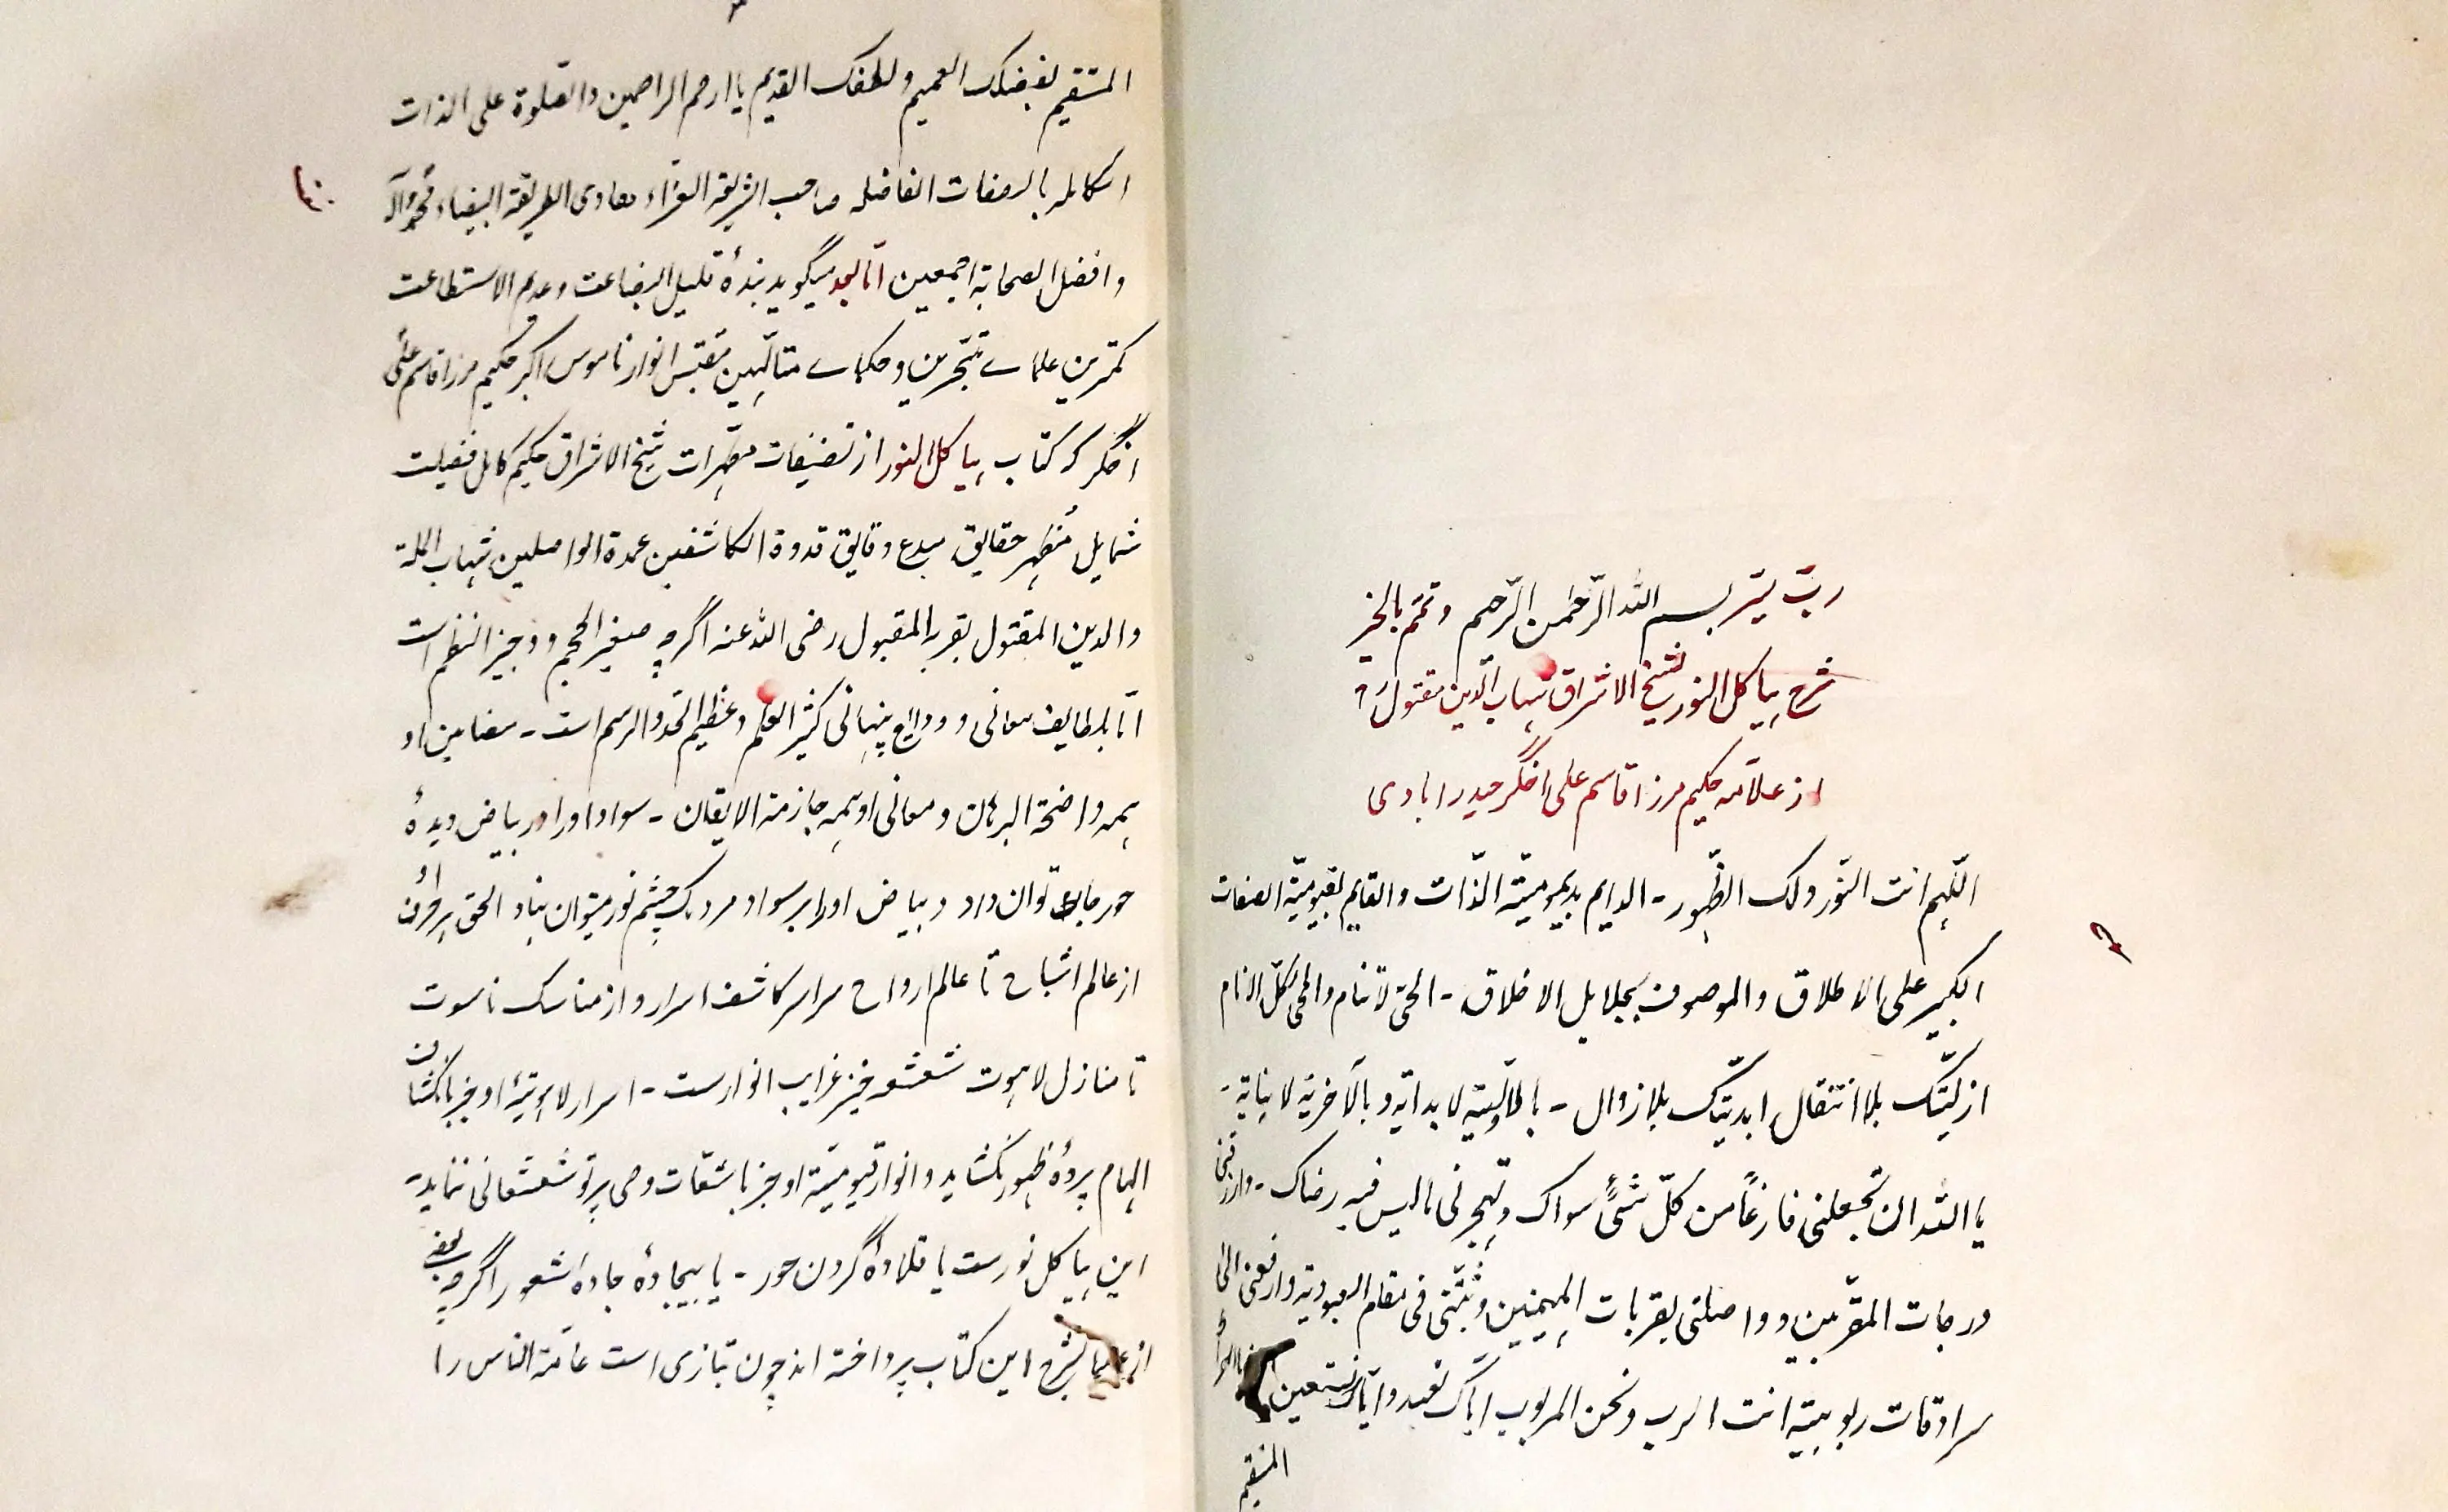 ربّ یسّر بسم اللہ الرّحمٰن الرّحیم وتمّم بالخیر
شرح ہیاکل النور لشیخ الاشراق شہاب الدّین مقتولؒ
از علاّمہ حکیم مرزا قاسم علی اخگر حیدرابادی
اللّہم انت النّور ولک الظّہور ۔ الدایم بدیمومیّۃ الذّات والقایم بقیومیّۃ الصفات
الکبیر علی الاطلاق والموصوف بجلایل الاخلاق ۔ الحیّ لاتنام والمحی لکلّ الانام
ازلیّتک بلا انتقال ابدیّتک بلا زوال ۔ بالاوّلیّۃ لا بدایۃ و بالآخریۃ لا نہایۃ ۔
یا اللہ ان تجعلنی فارغاً من کلّ شئیٍ سواک وتہجرنی مالیس فیہ رضاک ۔ وارزقنی
درجات المقرّبین و واصلنی بقربات المہیمنین وثبّتنی فی مقام العبودیۃ وارفعنی الیٰ
سرادقات ربوبیّۃ انت الرب ونحن المربوب ایّاک نعبد وایّاک نستعین
المستقیم
المستقیم بفیضک العمیم ولطفک القدیم یا ارحم الراحمین والصّلوۃ علی الذات
الکاملہ بالصفات الفاضلہ صاحب الشریعۃ الغرّاء وھادی الطریقۃ البیضاء محمّد وآلہ
وافضل الصحابۃ اجمعین امّا بعد میگوید بندۂ قلیل البضاعت وعدیم الاستطاعت
کمترین علمائے متبحّرین وحکمائے متالّہین مقتبس انوار ناموس اکبر حکیم مرزا قاسم علی
اخگر کہ کتاب ہیاکل النور از تصنیفات مطہّرات شیخ الاشراق حکیم کامل فضیلت
شمایل مُظہر حقایق مبدع دقایق قدوۃ الکاشفین عمدۃ الواصلین شہاب الملۃ
والدین المقتول بقربہ المقبول رضی اللہ عنہ اگرچہ صغیر الحجم و وجیز النظم است
امّا بلطایف معانی و ودایع پنہانی کثیر العلم وعظیم الحدّ والرسم است ۔ مضامین او
ہمہ واضحۃ البرہان ومعانی او ہمہ جازمۃ الایقان ۔ سواد اورا در بیاض دیدۂ
حور جا توان داد و بیاض اورا بر سواد مردمک چشم نور میتوان نہاد الحق ہر حرف او
از عالم اشباح تا عالم ارواح سراسر کاشف اسرار و از مناسک ناسوت
تا منازل لاہوت شعشعہ خیز غرایب انوارست ۔ اسرار لاہوتیۂ او جز بانکشاف
الہام پردۂ ظہور نکشاید و انوار قیومیّۃ او جز باشعّات وحی پرتو شعشعانی ننماید ۔
این ہیاکل نورست یا قلادۂ گردن حور ۔ یا بیجادۂ جادہ اشعور اگرچہ بعضے
از علما بشرح این کتاب پرداختہ اند چون بتازی است عامّۃ الناس را